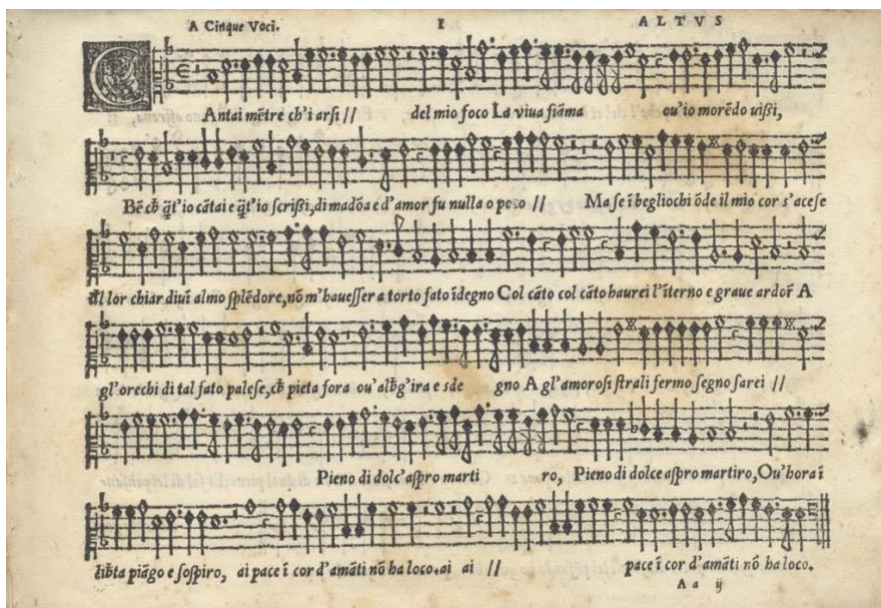 A Cinque Voci. I ALTVS
CAntai mētre ch'i arsi // del mio foco La viua fiāma ou'io morēdo uißi,
Bē cħ q̄t'io cātai e q̄t'io scrißi, di madōa e d'amor fu nulla o poco // Ma se ī begliochi ōde il mio cor s'acese
lor chiar diuī almo splēdore, nō m'hauesser a torto fato īdegno Col cāto col cāto haurei l'īterno e graue A
gl'orechi di tal fato palese, cħ pieta fora ou' g'ira e sde gno A gl'amorosi strali fermo segno sarei //
Pieno di dolc'aspro marti ro, Pieno di dolce aspro martiro, Ou'hora ī
piāgo e sospiro, ai pace ī cor d'amāti nō ha loco. ai ai // pace ī cor d'amāti nō ha loco.
A a ij